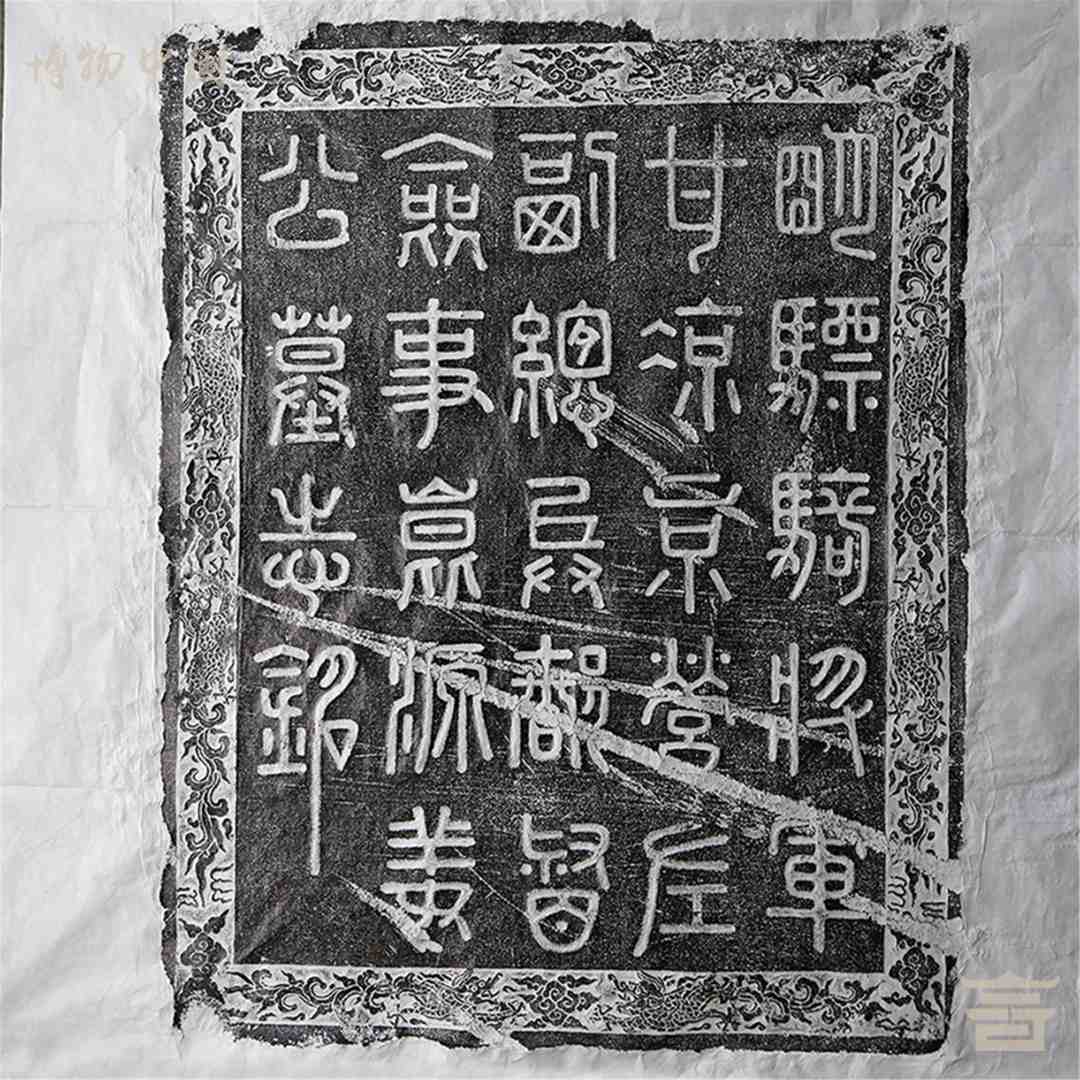 博物中国
明驃騎將軍
甘涼京營左
副總兵都督
僉事源姜
公墓志銘